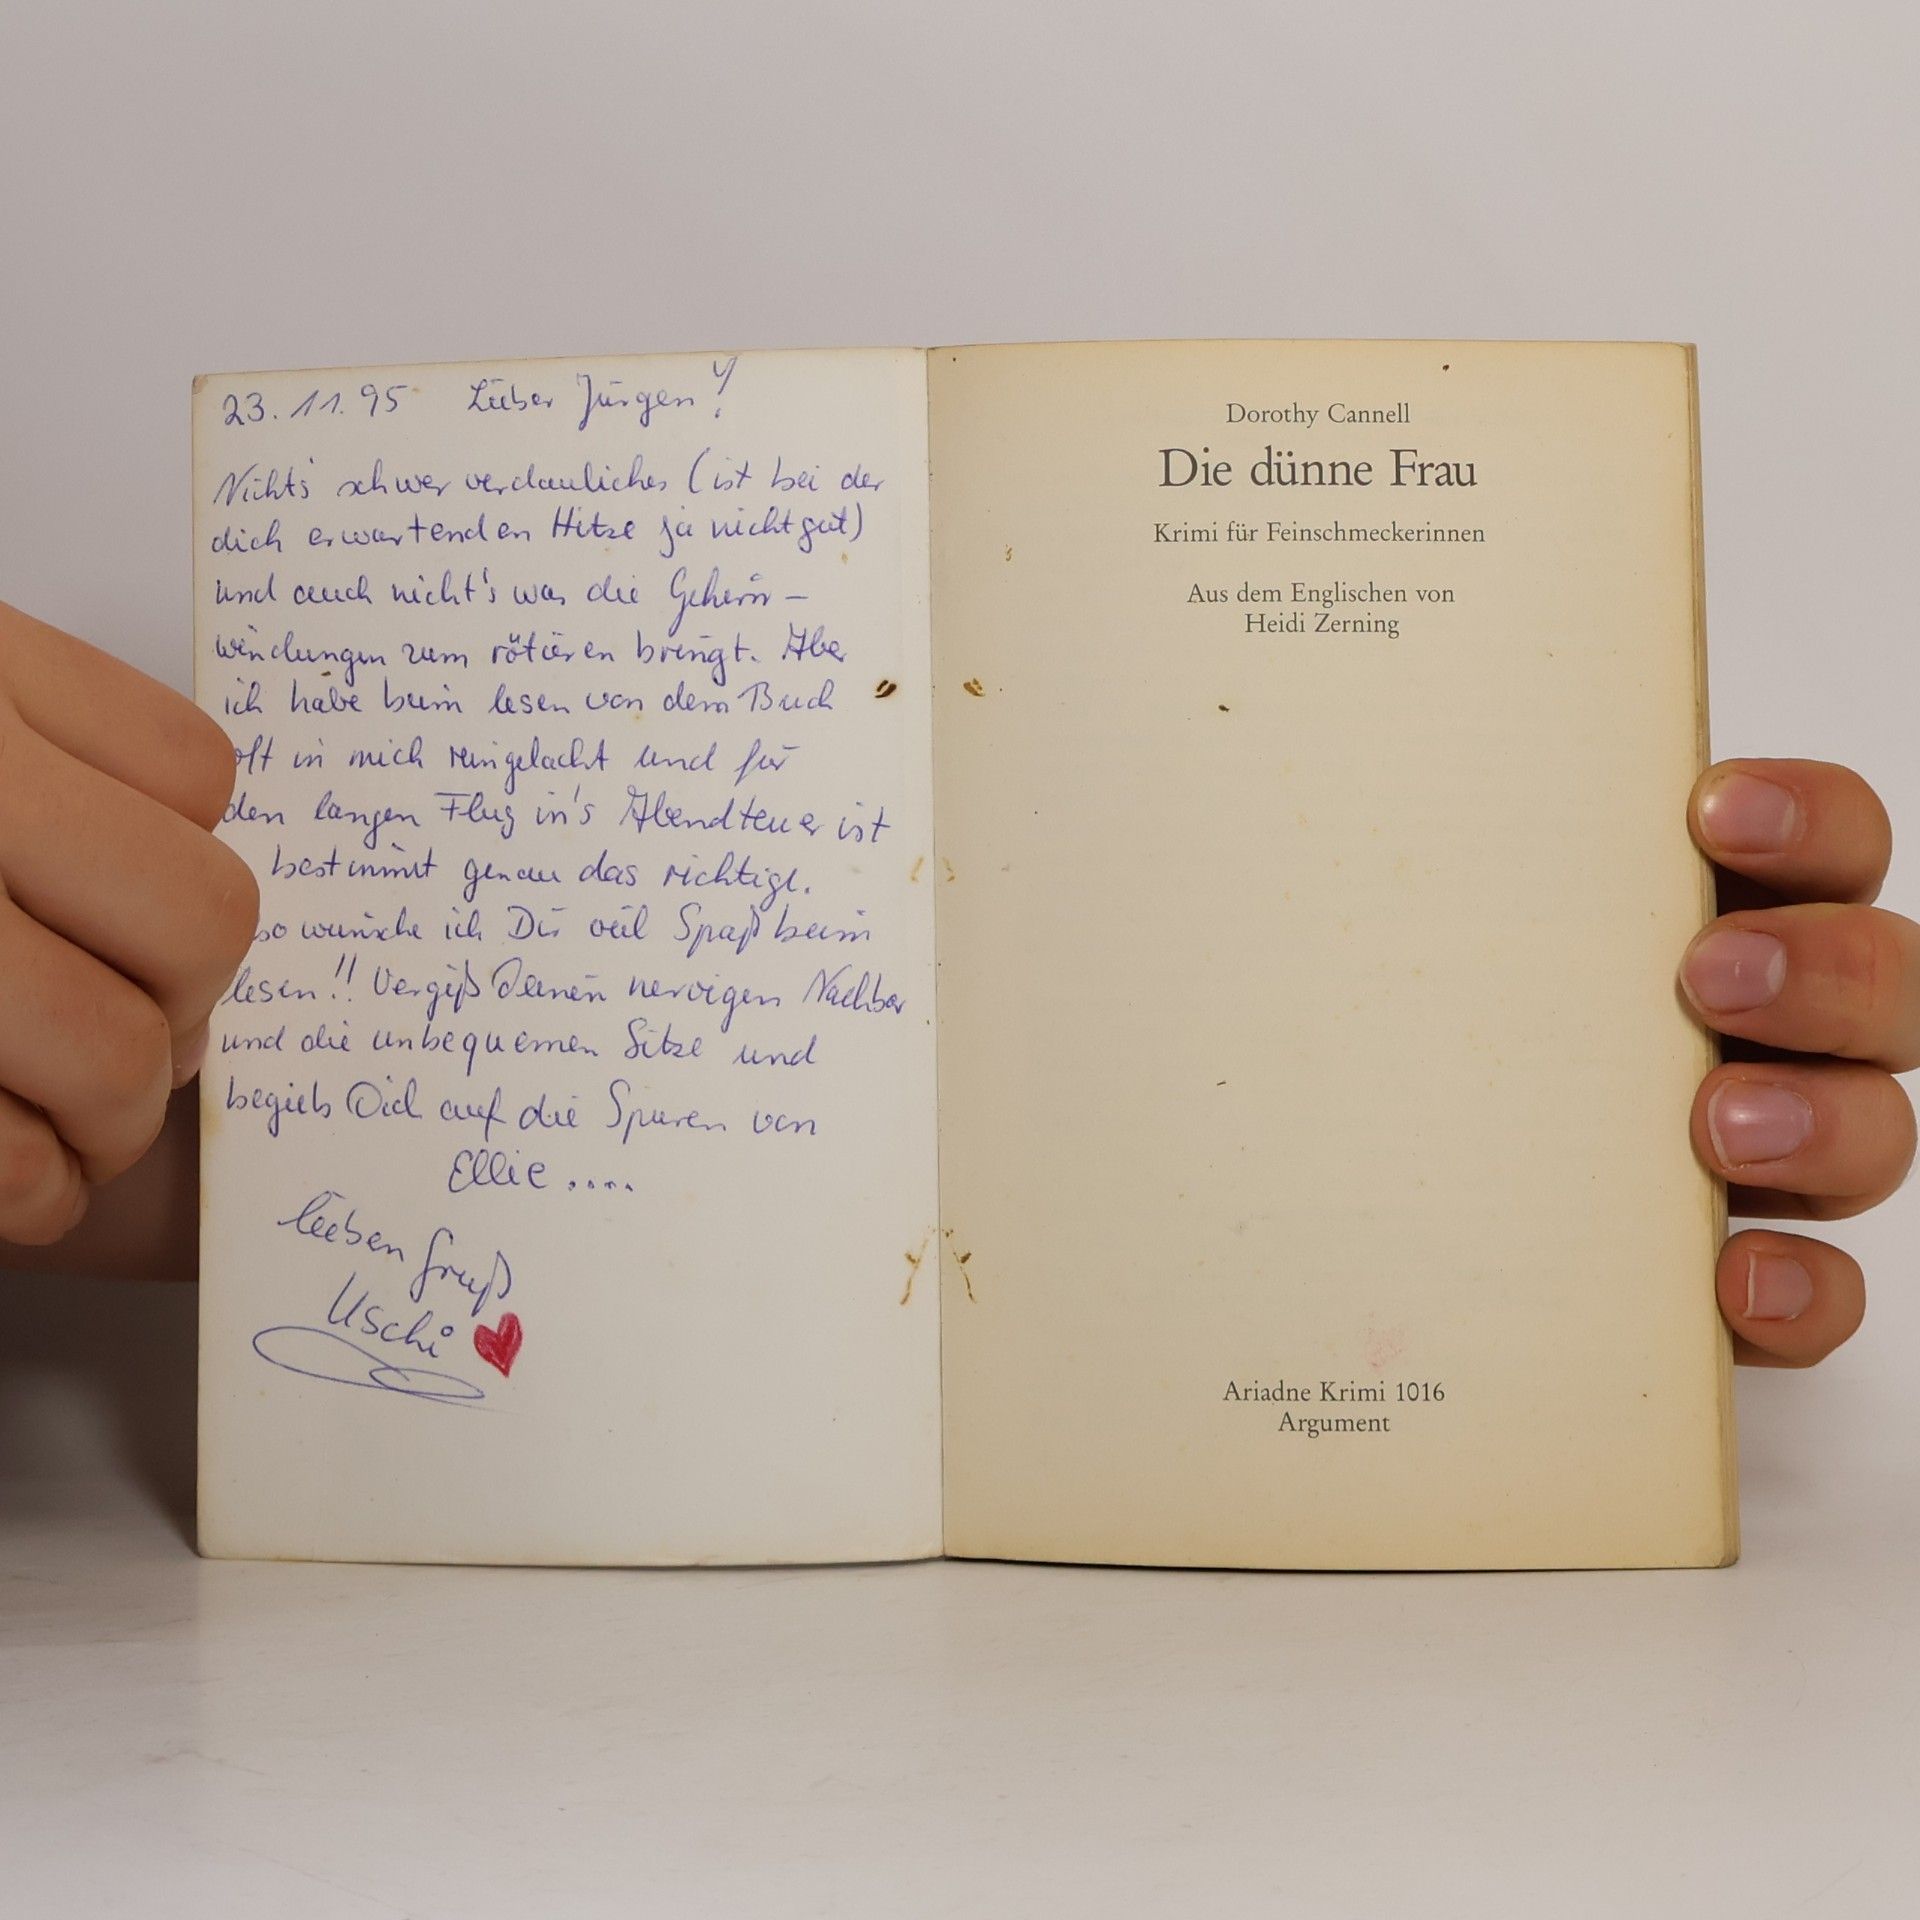 23.11.95 Lieber Jürgen!
Nicht's schwer verdauliches (ist bei der
dich erwartenden Hitze ja nicht gut)
und auch nicht's was die Gehirn-
windungen zum rotieren bringt. Aber
ich habe beim lesen von dem Buch
oft in mich reingelacht und für
den langen Flug in's Abendteuer ist
bestimmt genau das richtige.
so wünsche ich Dir viel Spaß beim
lesen!! Vergiß Deinen nervigen Nachbar
und die unbequemen Sitze und
begieb Dich auf die Spuren von
Ellie....
lieben Gruß
Uschi
Dorothy Cannell
Die dünne Frau
Krimi für Feinschmeckerinnen
Aus dem Englischen von
Heidi Zerning
Ariadne Krimi 1016
Argument